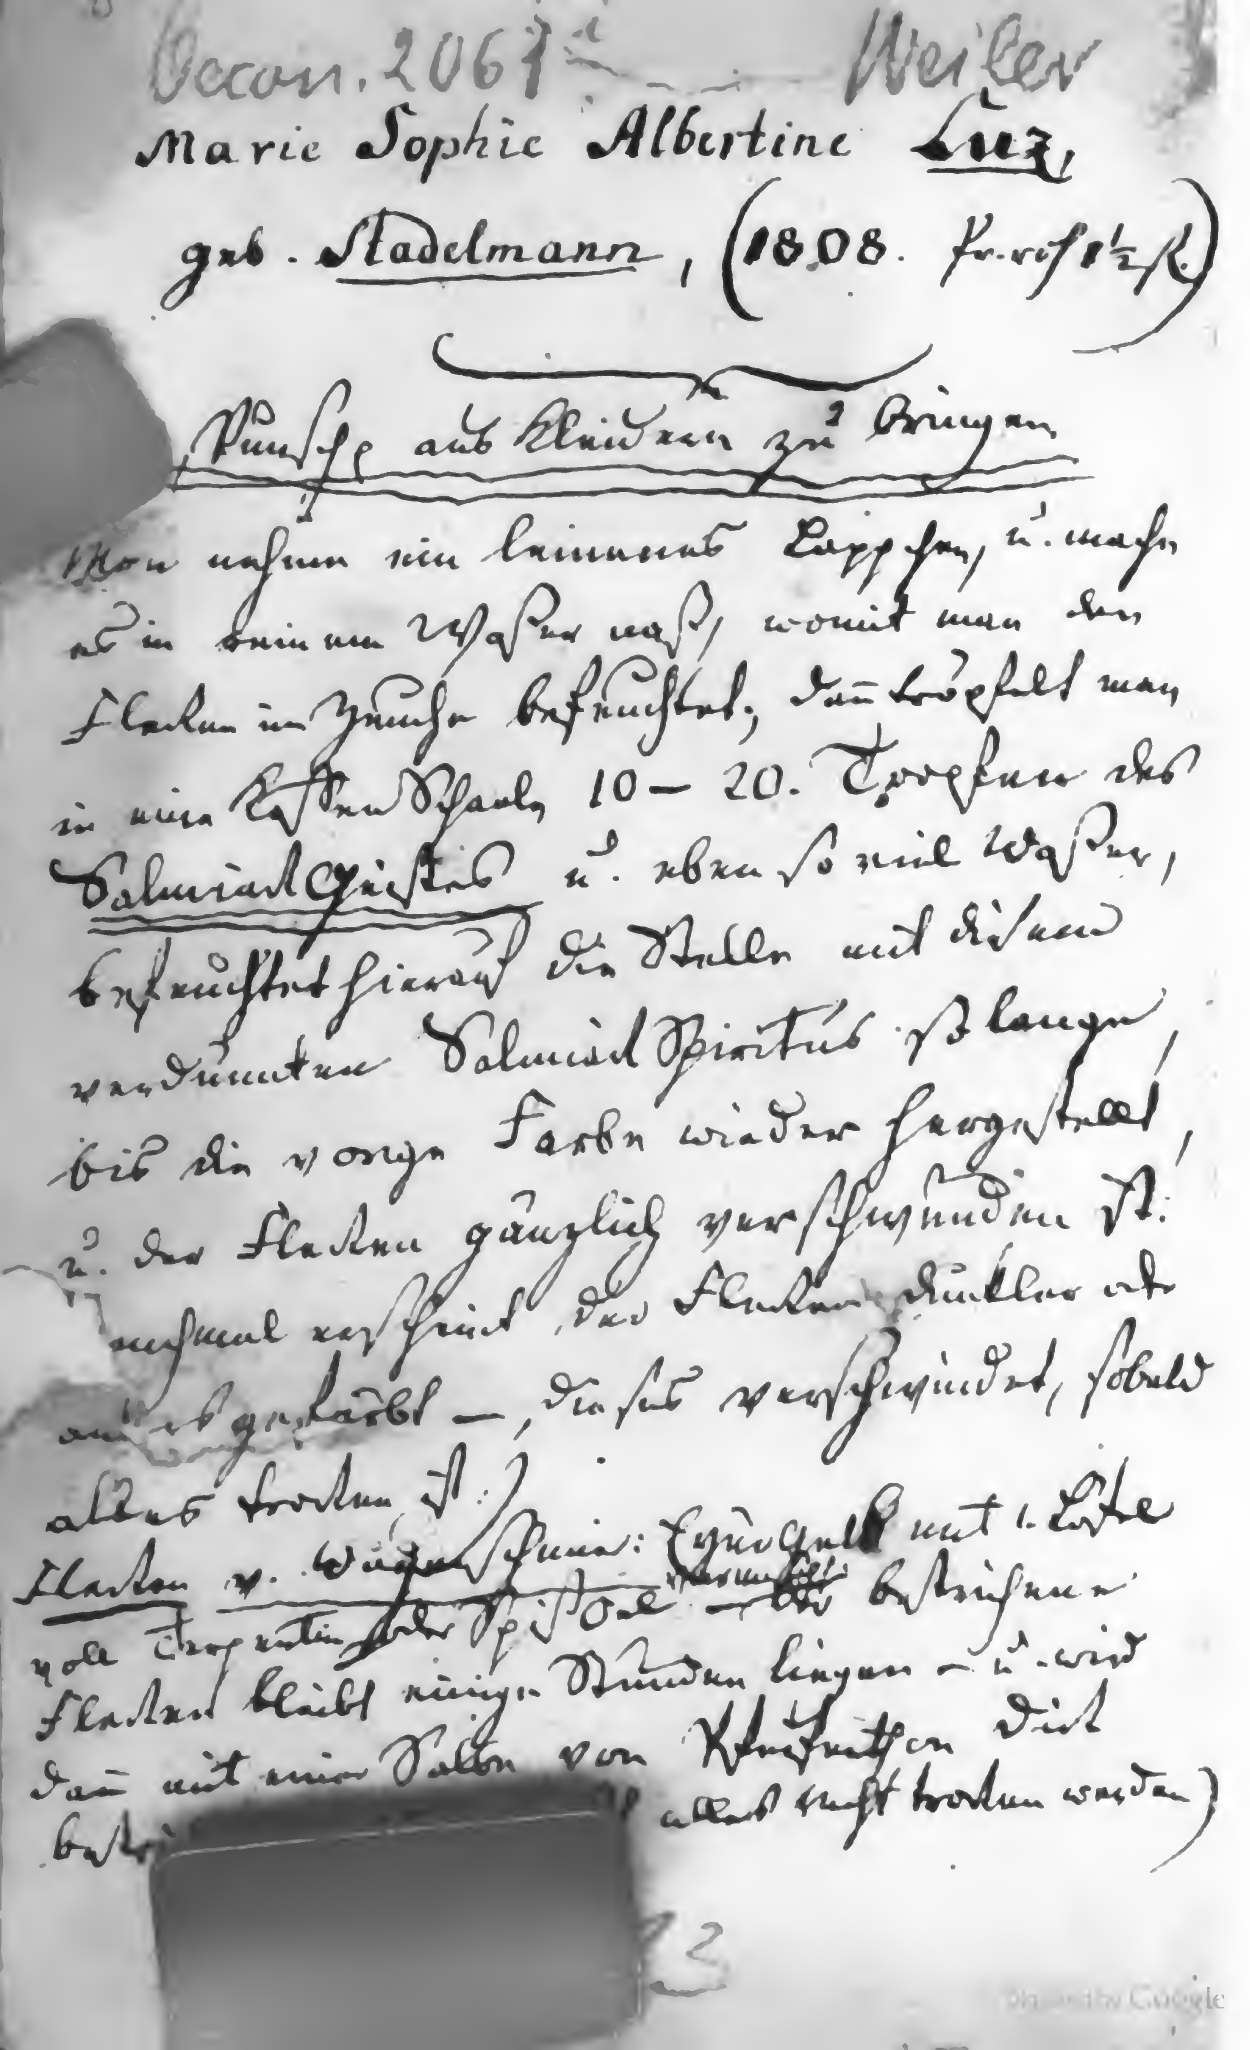 Oecon. 2067 Weiler
Marie Sophie Albertine Luz,
geb. Stadelmann, (1808.
Punsch aus Kleidern zu bringen
Man nehme ein leinenes Läppchen, u. mache
es in reinem Waßer naß, womit man den
Flecken im Zeuche befeuchtet, dann tröpfelt man
in eine Kaffee Schaale 10 – 20. Tropfen des
Salmiack Geistes u. eben so viel Waßer,
befeuchtet hierauf die Stelle mit diesem
verdünnten Salmiack Spiritus so lange,
bis die vorige Farbe wieder hergestellt,
u. der Flecken gänzlich verschwunden ist.
erscheint der Flecken dunkler oder
anders gefärbt –, dieses verschwindet, sobald
alles trocken ist.)
Flecken v. Wagenschmier: Eyergelb mit 1. Löfel
voll Terpentin oder bestrichene
Flecken bleibt einige Stunden liegen – u. wird
dann mit einer Salbe von dick
alles recht trocken werden)
Digitized by Google